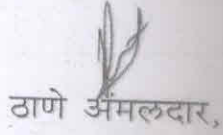 ठाणे अंमलदार,